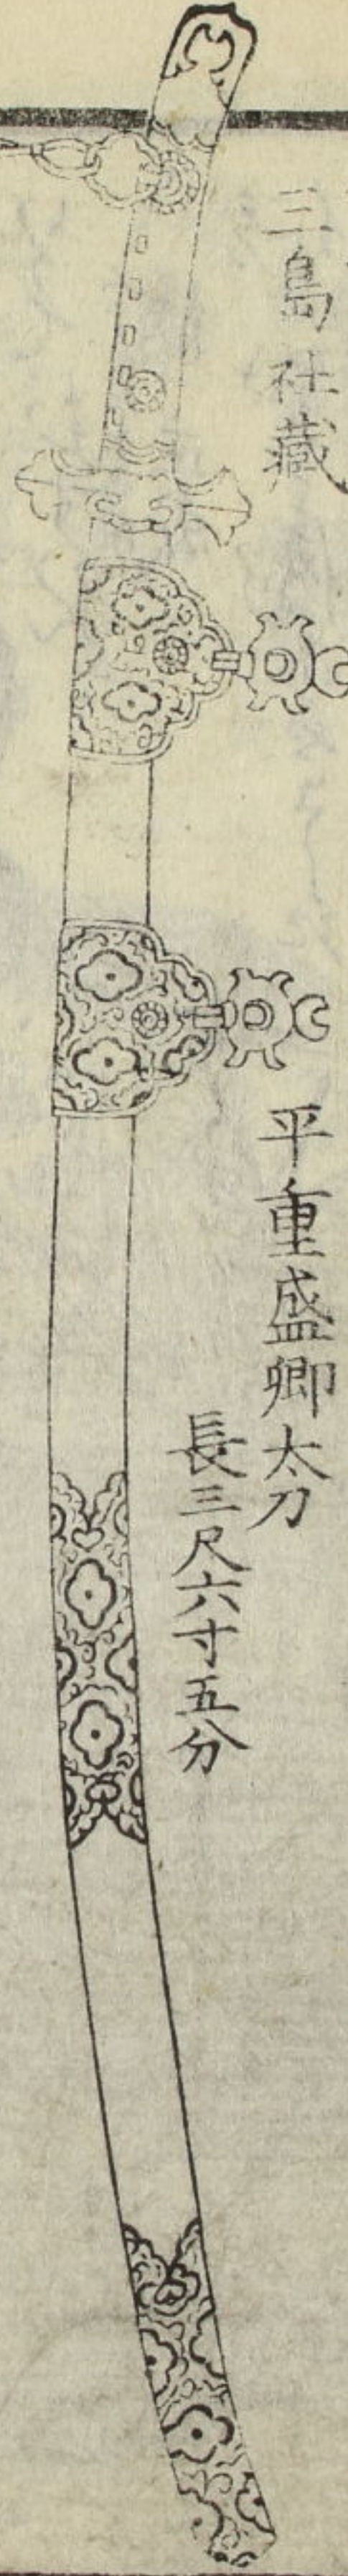 三島社藏
平重盛卿太刀
長三尺六寸五分